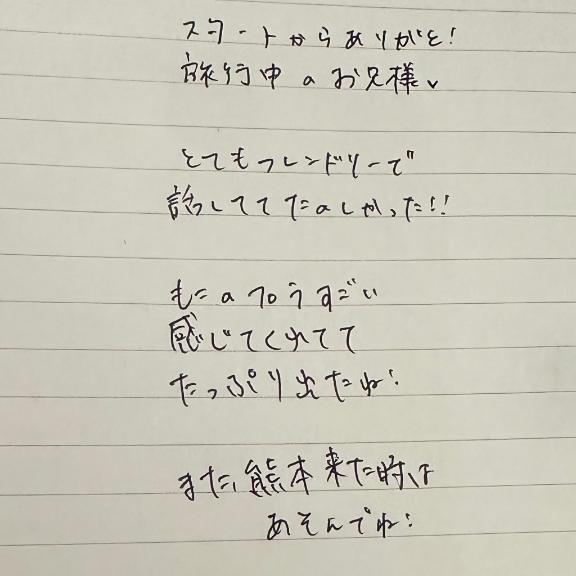 スタートからありがと!
旅行中のお兄様♥
とてもフレンドリーで
話しててたのしかった!!
もこのプロうすごい
感じてくれてて
たっぷり出たね!
また、熊本来た時は
あそんでね!